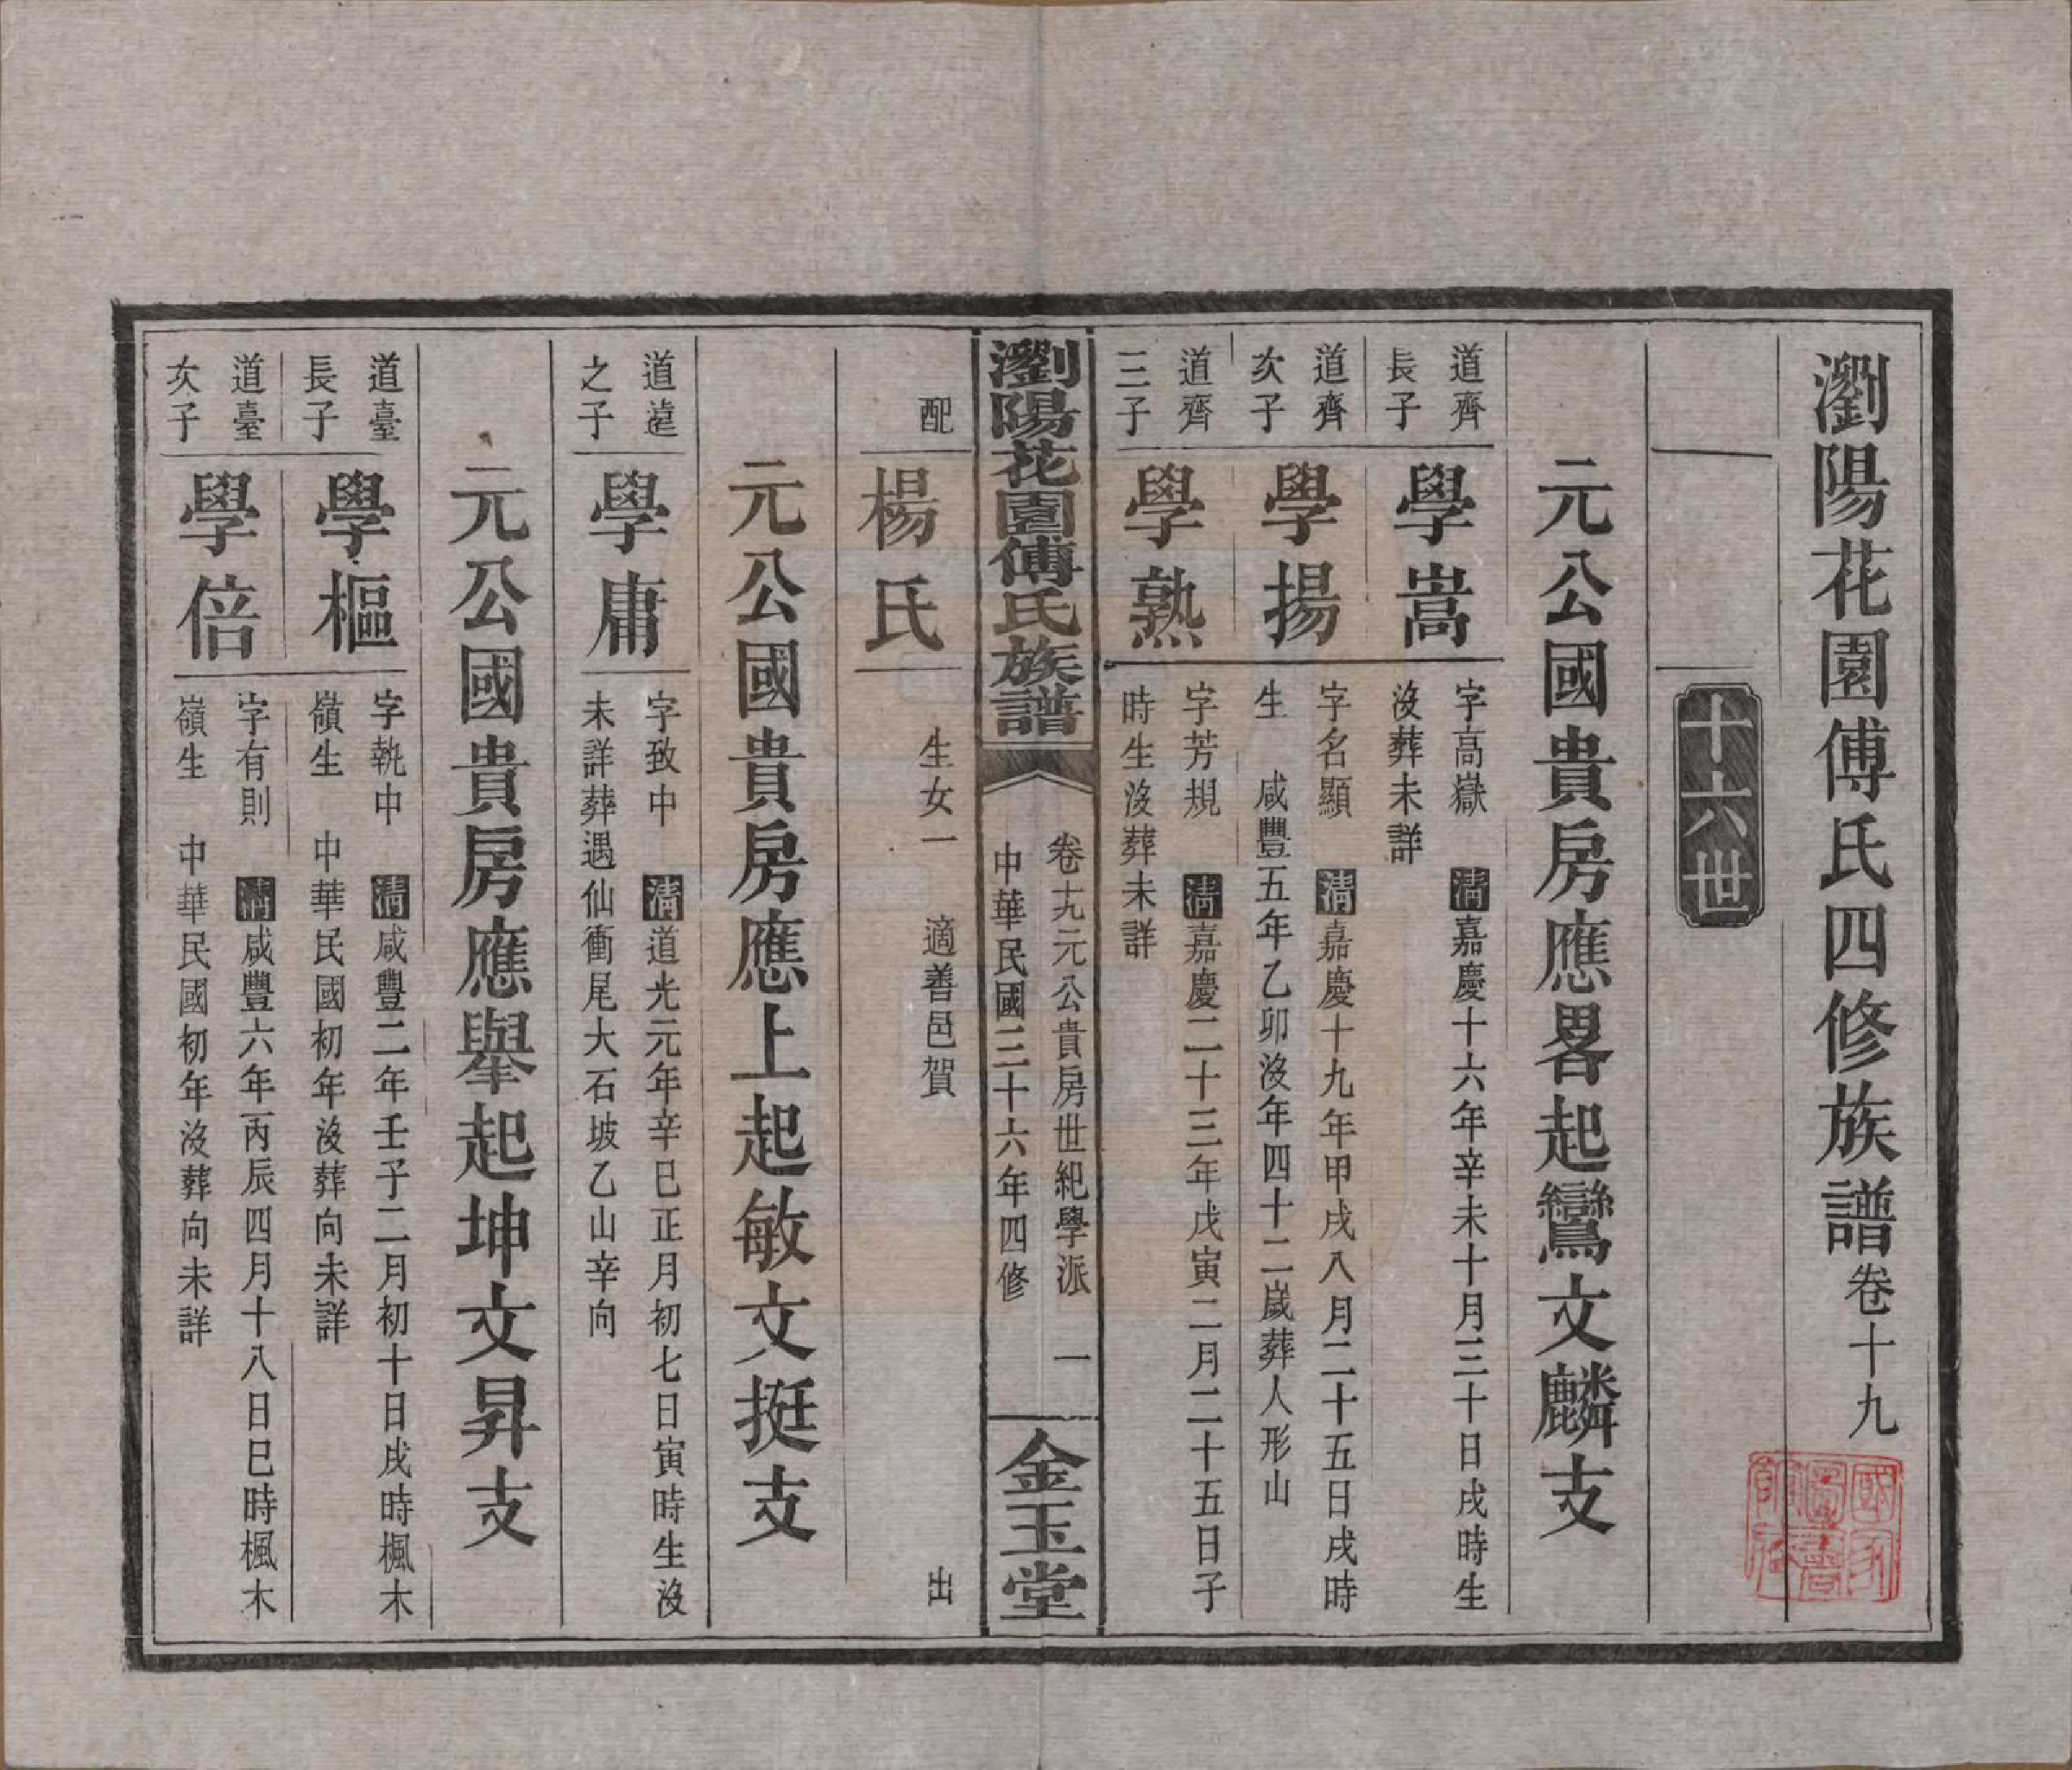 瀏陽花園傅氏四修族譜卷十九
國家圖書館藏
十六世
元公國貴房應畧起鸞文麟支
道齊
長子
學嵩
字高嶽 清嘉慶十六年辛未十月三十日戌時生
沒葬未詳
道齊
次子
學揚
字名顯 清嘉慶十九年甲戌八月二十五日戌時
生 咸豐五年乙卯沒年四十二歲葬人形山
道齊
三子
學熟
字芳規 清嘉慶二十三年戊寅二月二十五日子
時生沒葬未詳
瀏陽花園傅氏族譜
卷十九元公貴房世紀學派 一
中華民國三十六年四修
金玉堂
配
楊氏
生女一 適善邑賀 出
元公國貴房應上起敏文挺支
道遠
之子
學庸
字致中 清道光元年辛巳正月初七日寅時生沒
未詳葬遇仙衝尾大石坡乙山辛向
元公國貴房應舉起坤文昇支
道臺
長子
學樞
字執中 清咸豐二年壬子二月初十日戌時楓木
嶺生 中華民國初年沒葬向未詳
道臺
次子
學倍
字有則 清咸豐六年丙辰四月十八日巳時楓木
嶺生 中華民國初年沒葬向未詳